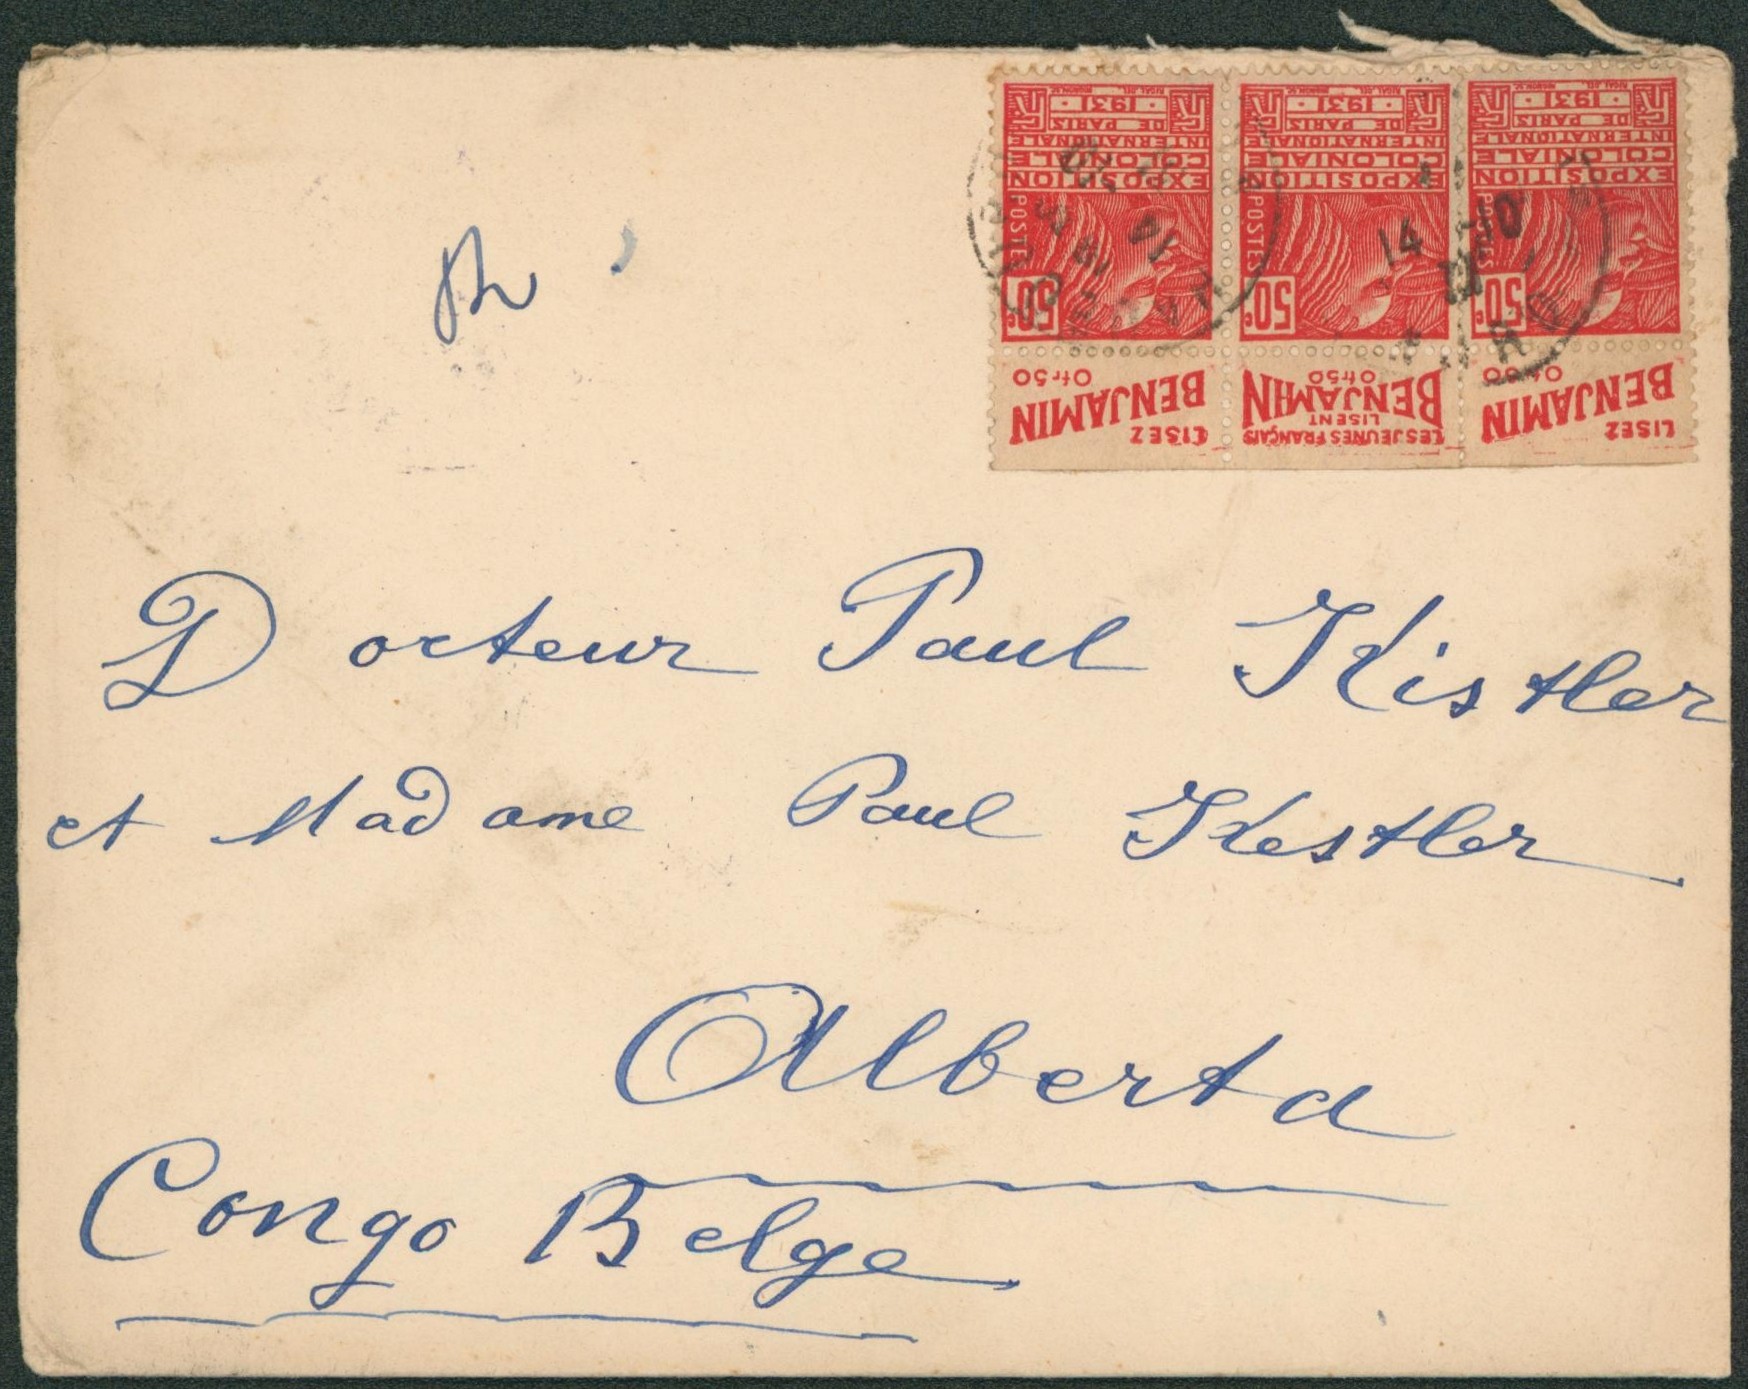 1931 1931 1931
DE PARIS DE PARIS DE PARIS
INTERNATIONALE INTERNATIONALE INTERNATIONALE
COLONIALE COLONIALE COLONIALE
EXPOSITION EXPOSITION EXPOSITION
POSTES POSTES POSTES
50c 50c 50c
14 -10
0fr50 0fr50
BENJAMIN BENJAMIN BENJAMIN
LISEZ LES JEUNES FRANÇAIS LISENT LISEZ
Docteur Paul Kistler
et Madame Paul Kestler
Alberta
Congo Belge